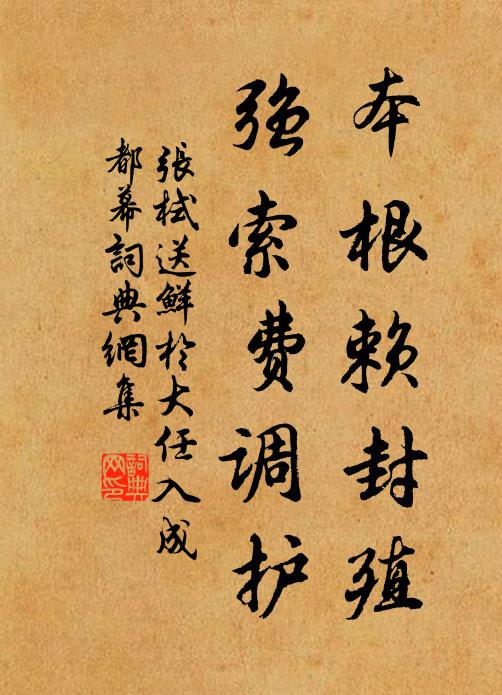 本根赖封殖
强索费调护
張栻送鮮於大任入成
都幕詞典網集
詞典
网印